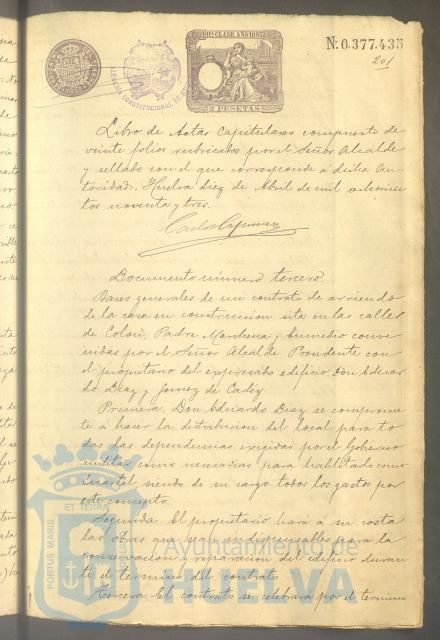 11ª CLASE AÑO 1893
N: 0.377.435
201
2 PESETAS
Libro de Actas Capitulares compuesto de
veinte folios rubricados por el Señor Alcalde
y sellado con el que corresponde á dicha Au
toridad. Huelva diez de Abril de mil ochocien
tos noventa y tres.
Documento número tercero.
Bases generales de un contrato de arriendo
de la casa en construccion sita en las calles
de Colon, Padre Marchena y conve
nidas por el Señor Alcalde Presidente con
el propietario del expresado edificio Don Eduar
do Diaz y Gomez de Cadiz
Primera. Don Eduardo Diaz se comprome
te á hacer la distribucion del local para to
das las dependencias exigidas por el Gobierno
militar como necesarias para habilitarlo como
Cuartel siendo de su cargo todos los gastos por
este concepto.
Segunda. El propietario hará á su costa
las obras que sean indispensables para la
conservacion y reparacion del edificio duran
te el termino del contrato.
Tercera. El contrato se celebrará por el termino
PORTUS MARIS
ET TERRÆ
Ayuntamiento de
HUELVA